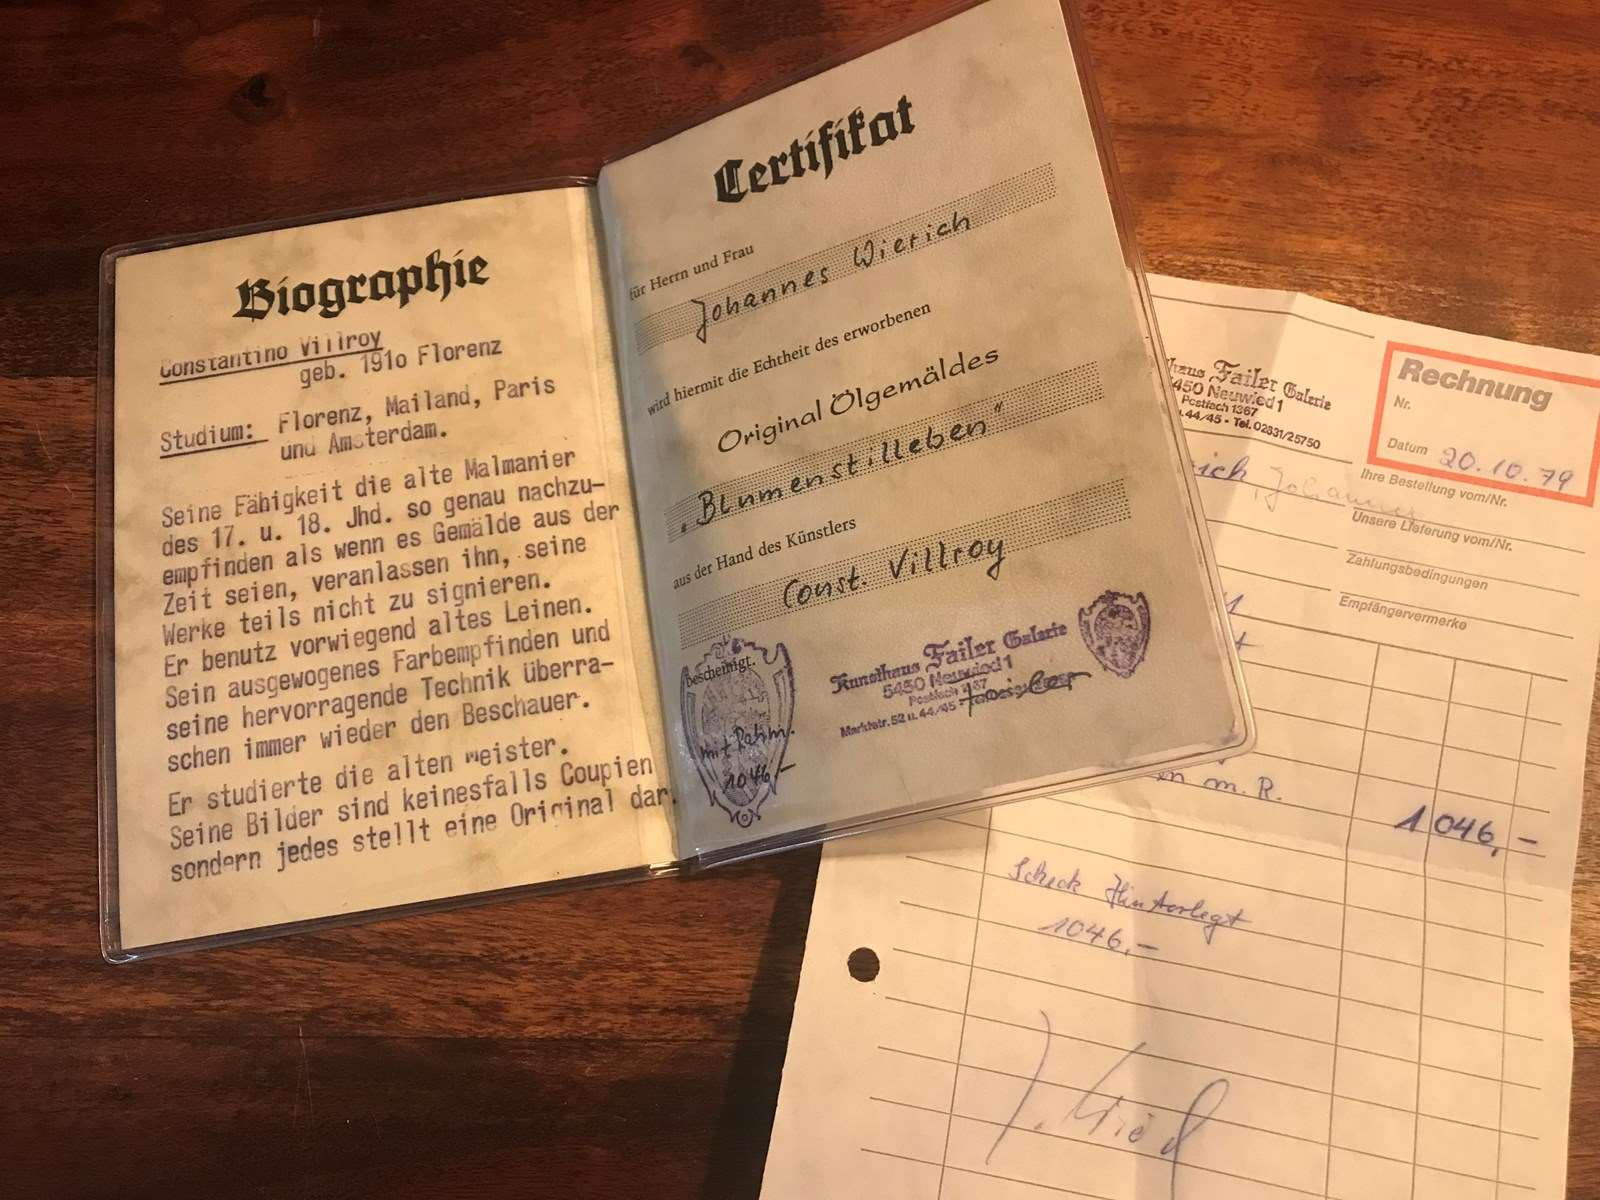 Biographie
Constantino Villroy
geb. 191o Florenz
Studium: Florenz, Mailand, Paris
und Amsterdam.
Seine Fähigkeit die alte Malmanier
des 17. u. 18. Jhd. so genau nachzu-
empfinden als wenn es Gemälde aus der
Zeit seien, veranlassen ihn, seine
Werke teils nicht zu signieren.
Er benutz vorwiegend altes Leinen.
Sein ausgewogenes Farbempfinden und
seine hervorragende Technik überra-
schen immer wieder den Beschauer.
Er studierte die alten meister.
Seine Bilder sind keinesfalls Coupien
sondern jedes stellt eine Original dar.
Certifikat
für Herrn und Frau
Johannes Wierich
wird hiermit die Echtheit des erworbenen
Original Ölgemäldes
„Blumenstilleben"
aus der Hand des Künstlers
Const. Villroy
bescheinigt.
mit Rahm.
1046,-
Kunsthaus Failer Galerie
5450 Neuwied 1
Postfach 1367
Marktstr. 52 u. 44/45
Failer Galerie
5450 Neuwied 1
Postfach 1367
u. 44/45 - Tel. 02631/25750
Rechnung
Nr.
Datum 20.10.79
Ihre Bestellung vom/Nr.
Unsere Lieferung vom/Nr.
Zahlungsbedingungen
Empfängervermerke
m. R.
1046,-
Scheck Hinterlegt
1046,-